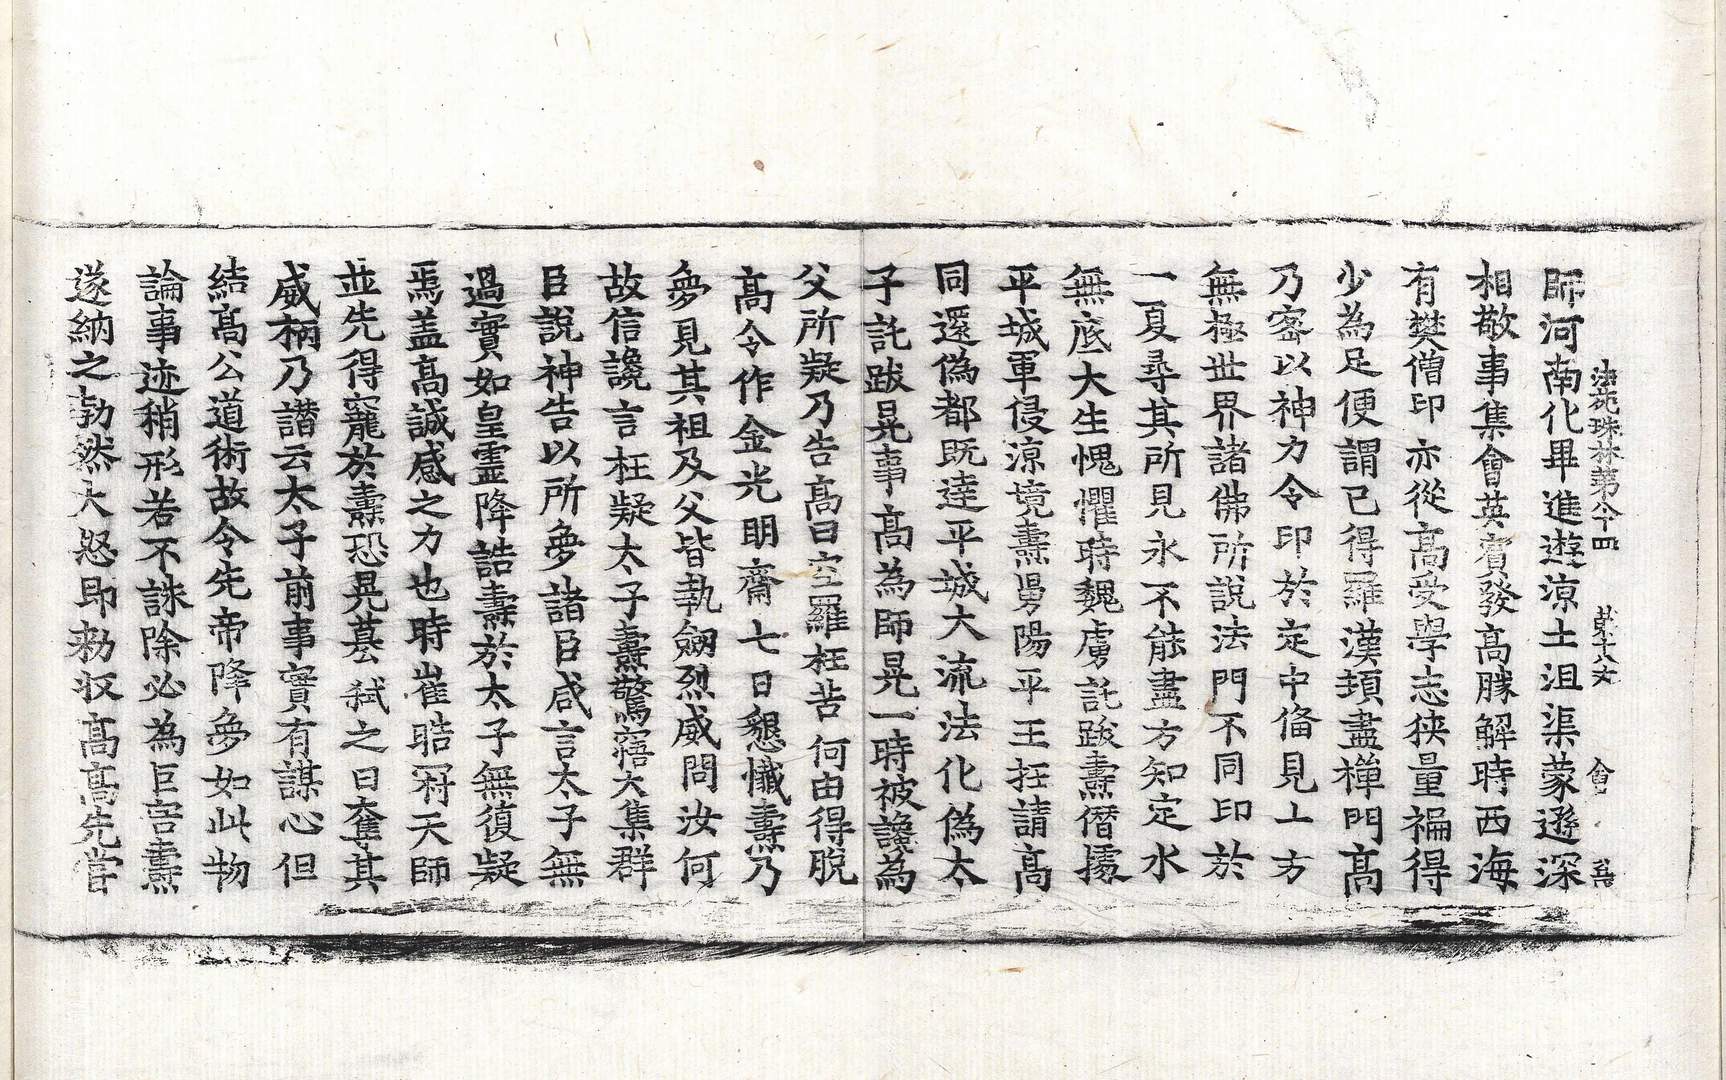 法苑珠林第八十四 第十八丈 會
師河南化畢進遊涼土沮渠蒙遜深
相敬事集會英賓發高勝解時西海
有樊僧印亦從高受學志狹量褊得
少為足便謂已得羅漢頓盡禪門高
乃密以神力令印於定中俻見上方
無極世界諸佛所說法門不同印於
一夏尋其所見永不能盡方知定水
無底大生愧懼時魏虜託跋燾僭據
平城軍侵涼境燾舅陽平王抂請高
同還偽都既達平城大流法化偽太
子託跋晃事高為師晃一時被讒為
父所疑乃告高曰空羅枉苦何由得脫
高令作金光明齋七日懇懺燾乃
夢見其祖及父皆執劒烈威問汝何
故信讒言枉疑太子燾驚寤大集群
臣說神告以所夢諸臣咸言太子無
過實如皇靈降誥燾於太子無復疑
焉盖高誠感之力也時崔晧冦天師
並先得寵於燾恐晃慕弑之日奪其
威柄乃譖云太子前事實有謀心但
結高公道術故令先帝降夢如此物
論事迹稍形若不誅除必為巨害燾
遂納之勃然大怒即勑收高高先嘗